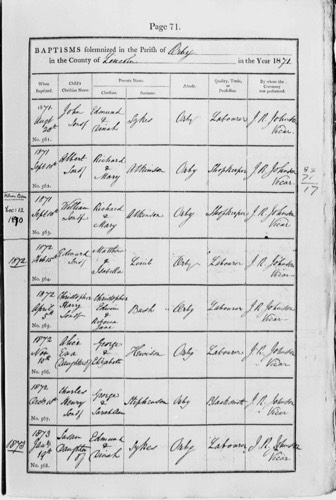 Page 71.
BAPTISMS solemnized in the Parish of Orby
in the County of Lincoln in the Year 1871
When Baptized. Child's Christian Name. Parents Name. Christian. Surname. Abode. Quality, Trade, or Profession. By whom the Ceremony was performed.
1871 Augt 20th No. 561. John Son of Edmund & Dinah Sykes Orby Labourer J R Johnson Vicar
1871 Sept 10th No. 562. Albert Son of Richard & Mary Atkinson Orby Shopkeeper J. R. Johnson Vicar
1871 Sept 10th No. 563. William Son of Richard & Mary Atkinson Orby Shopkeeper J. R. Johnson Vicar
Dec: 12 1870
1872
1872 No. 564. Edward Son of & Isabella Orby Labourer J. R. Johnson Vicar
1872 April No. 565. Christopher Harry Son of Christopher Edwin & Jane Bush Orby Labourer J. R. Johnson Vicar
1872 Nov 10th No. 566. Alice Eva Daughter of George & Elizabeth Orby Labourer J. R. Johnson Vicar
1872 No. 567. Charles Henry Son of George & Sarah Ann Stephenson Orby Blacksmith J. R. Johnson Vicar
1873
1873 Jany 19th No. 568. Susan Daughter of Edmund & Dinah Sykes Orby Labourer J. R. Johnson Vicar
17